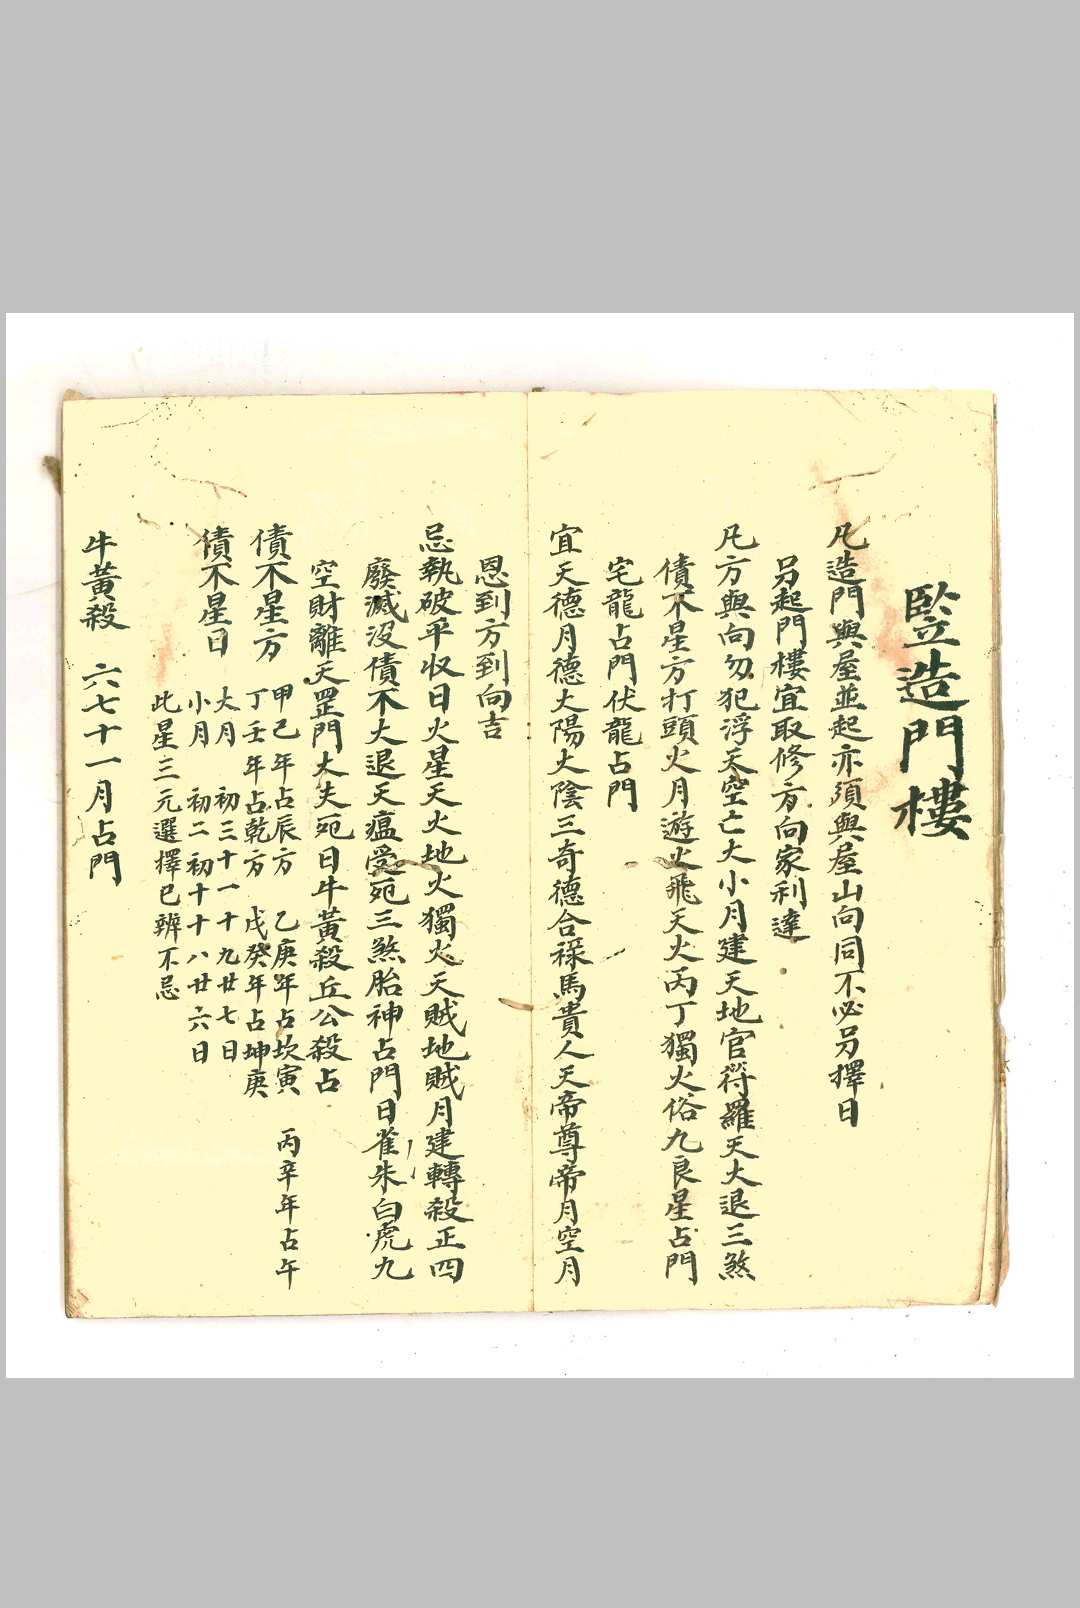 竪造門樓
凡造門與屋並起亦須與屋山向同不必另擇日
另起門樓宜取修方向家利達
凡方與向勿犯浮天空亡大小月建天地官符羅天大退三煞
債不星方打頭火月遊火飛天火丙丁獨火俗九良星占門
宅龍占門伏龍占門
宜天德月德太陽太陰三奇德合祿馬貴人天帝尊帝月空月
恩到方到向吉
忌執破平收日火星天火地火獨火天賊地賊月建轉殺正四
廢滅沒債不大退天瘟受死三煞胎神占門日雀朱白虎九
空財離天罡門大夫死日牛黃殺丘公殺占
債不星方
甲己年占辰方 乙庚年占坎寅 丙辛年占午
丁壬年占乾方 戊癸年占坤庚
債不星日
大月 初三十一十九廿七日
小月 初二初十十八廿六日
此星三元選擇已辨不忌
牛黃殺 六七十一月占門